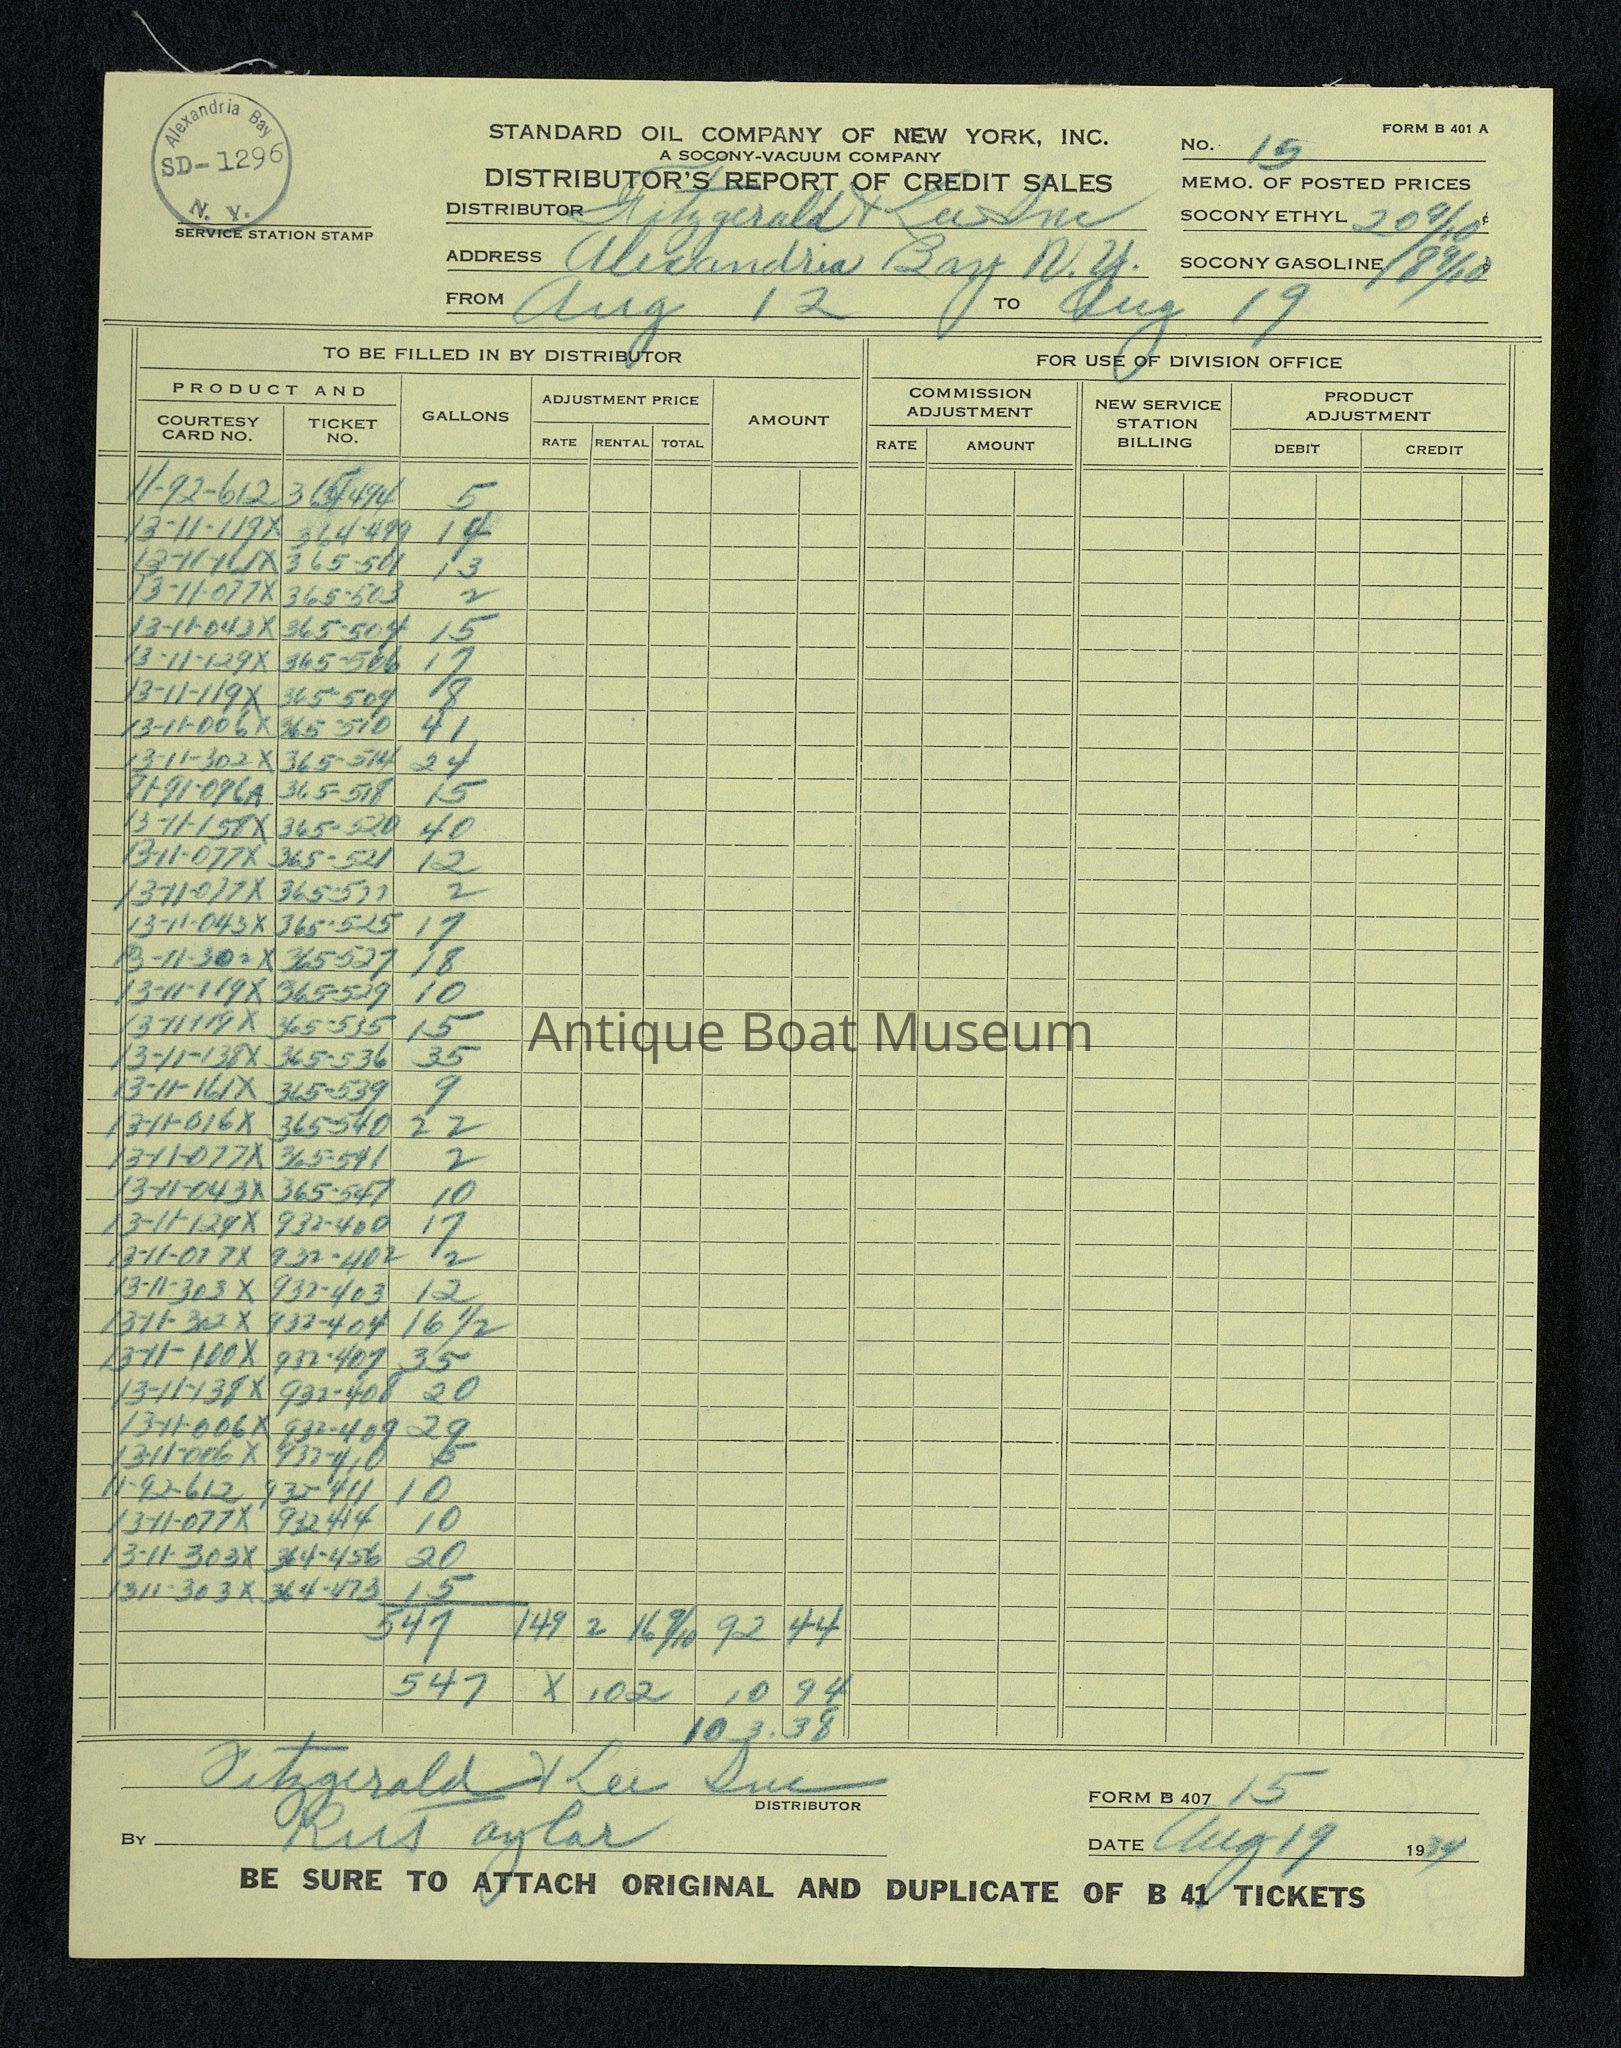 Alexandria Bay
SD-1296
N. Y.
SERVICE STATION STAMP
STANDARD OIL COMPANY OF NEW YORK, INC.
A SOCONY-VACUUM COMPANY
DISTRIBUTOR'S REPORT OF CREDIT SALES
FORM B 401 A
No. 15
MEMO. OF POSTED PRICES
DISTRIBUTOR Fitzgerald & Lee Inc
SOCONY ETHYL 20 9/10 ¢
ADDRESS Alexandria Bay N.Y.
SOCONY GASOLINE 18 9/10 ¢
FROM Aug 12 TO Aug 19
TO BE FILLED IN BY DISTRIBUTOR
FOR USE OF DIVISION OFFICE
PRODUCT AND
COURTESY CARD NO.
TICKET NO.
GALLONS
ADJUSTMENT PRICE
RATE RENTAL TOTAL
AMOUNT
COMMISSION ADJUSTMENT
RATE AMOUNT
NEW SERVICE STATION BILLING
PRODUCT ADJUSTMENT
DEBIT CREDIT
11-92-612 5
13-11-119X 364-499 14
13-11-161X 365-501 13
13-11-077X 365-503 2
13-11-043X 365-504 15
13-11-129X 365-506 17
13-11-119X 365-509 8
13-11-006X 365-510 41
13-11-302X 365-514 24
365-518 15
13-11-158X 365-520 40
13-11-077X 365-521 12
13-11-077X 2
13-11-043X 365-525 17
13-11-302X 365-527 18
13-11-119X 365-529 10
13-11-119X 365-535 15
13-11-138X 365-536 35
13-11-161X 365-539 9
13-11-016X 365-540 22
13-11-077X 365-541 2
13-11-043X 365-547 10
13-11-129X 932-400 17
13-11-077X 932-402 2
13-11-303X 932-403 12
13-11-302X 932-404 16 1/2
13-11-100X 932-407 35
13-11-138X 932-408 20
13-11-006X 932-409 29
13-11-006X 932-410 5
11-92-612 932-411 10
13-11-077X 932414 10
13-11-303X 364-456 20
1311-303X 364-473 15
547 149 2 16 9/10 92 44
547 X .02 10 94
103.38
Fitzgerald & Lee Inc
DISTRIBUTOR
FORM B 407 15
BY Rus Taylor
DATE Aug 19 1934
BE SURE TO ATTACH ORIGINAL AND DUPLICATE OF B 41 TICKETS
Antique Boat Museum